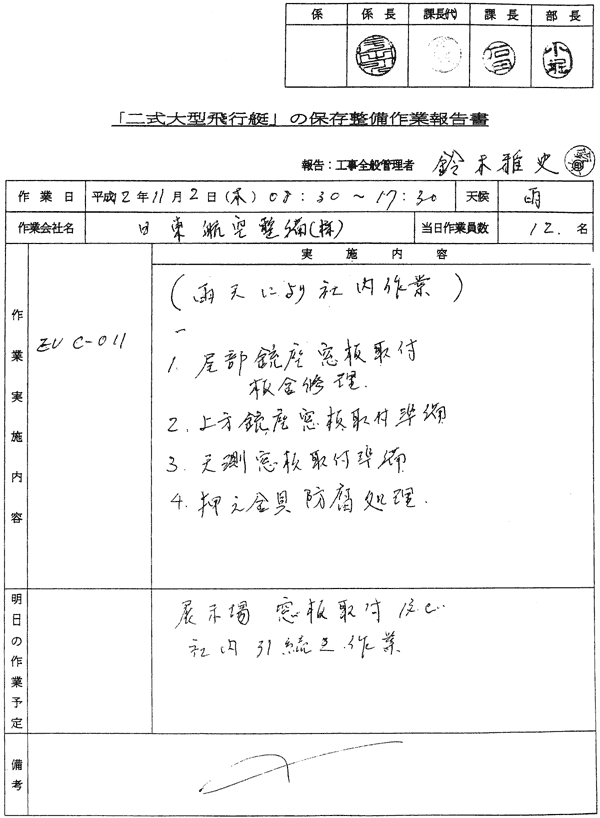 係 係長 課長代 課長 部長
小堀
「二式大型飛行艇」の保存整備作業報告書
報告:工事全般管理者 鈴木雅史
作業日 平成12年11月2日(木) 08:30~17:30 天候 雨
作業会社名 日東航空整備(株) 当日作業員数 12.名
作業実施内容 実施内容
EU C-011
(雨天により社内作業)
1. 尾部銃座窓板取付
板金修理.
2. 上方銃座窓板取付準備
3. 天測窓板取付準備
4. 押え金具防腐処理.
明日の作業予定
展示場 窓板取付
社内引続き作業
備考